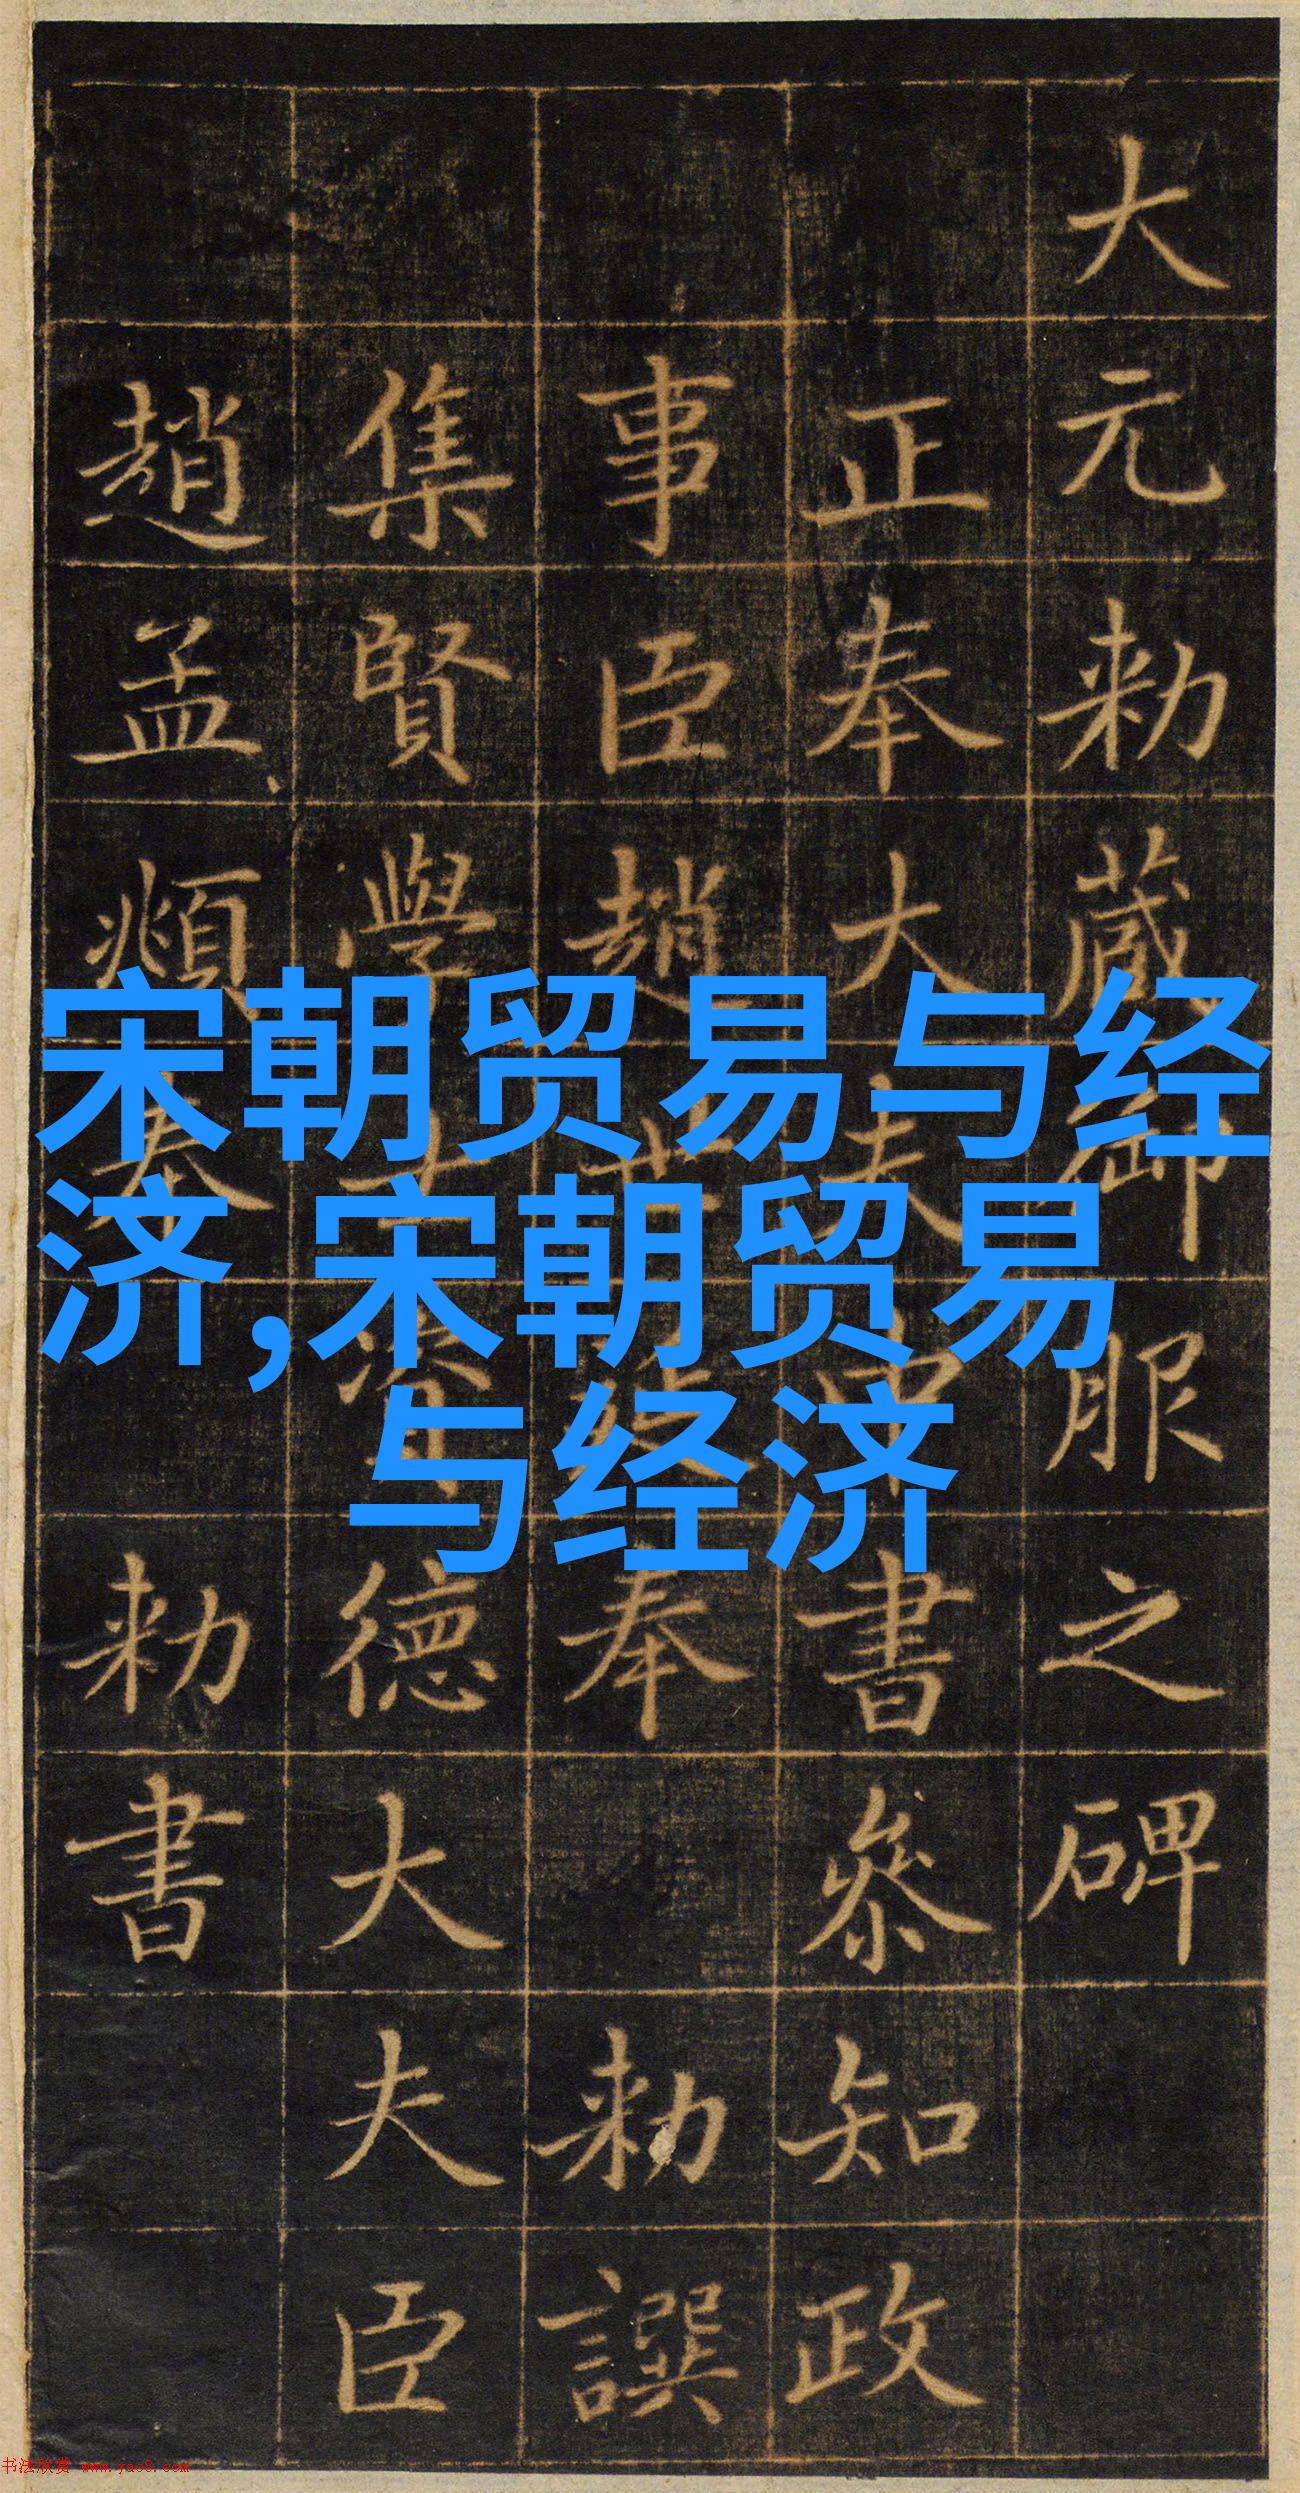 大元勅藏御服之碑
正奉大夫中書叅知政
事臣趙世延奉勅譔
集賢學士德大夫臣
趙孟頫奉勅書
宋朝贸易与经
济,宋朝贸易
与经济
书法欣赏 www.yac8.com